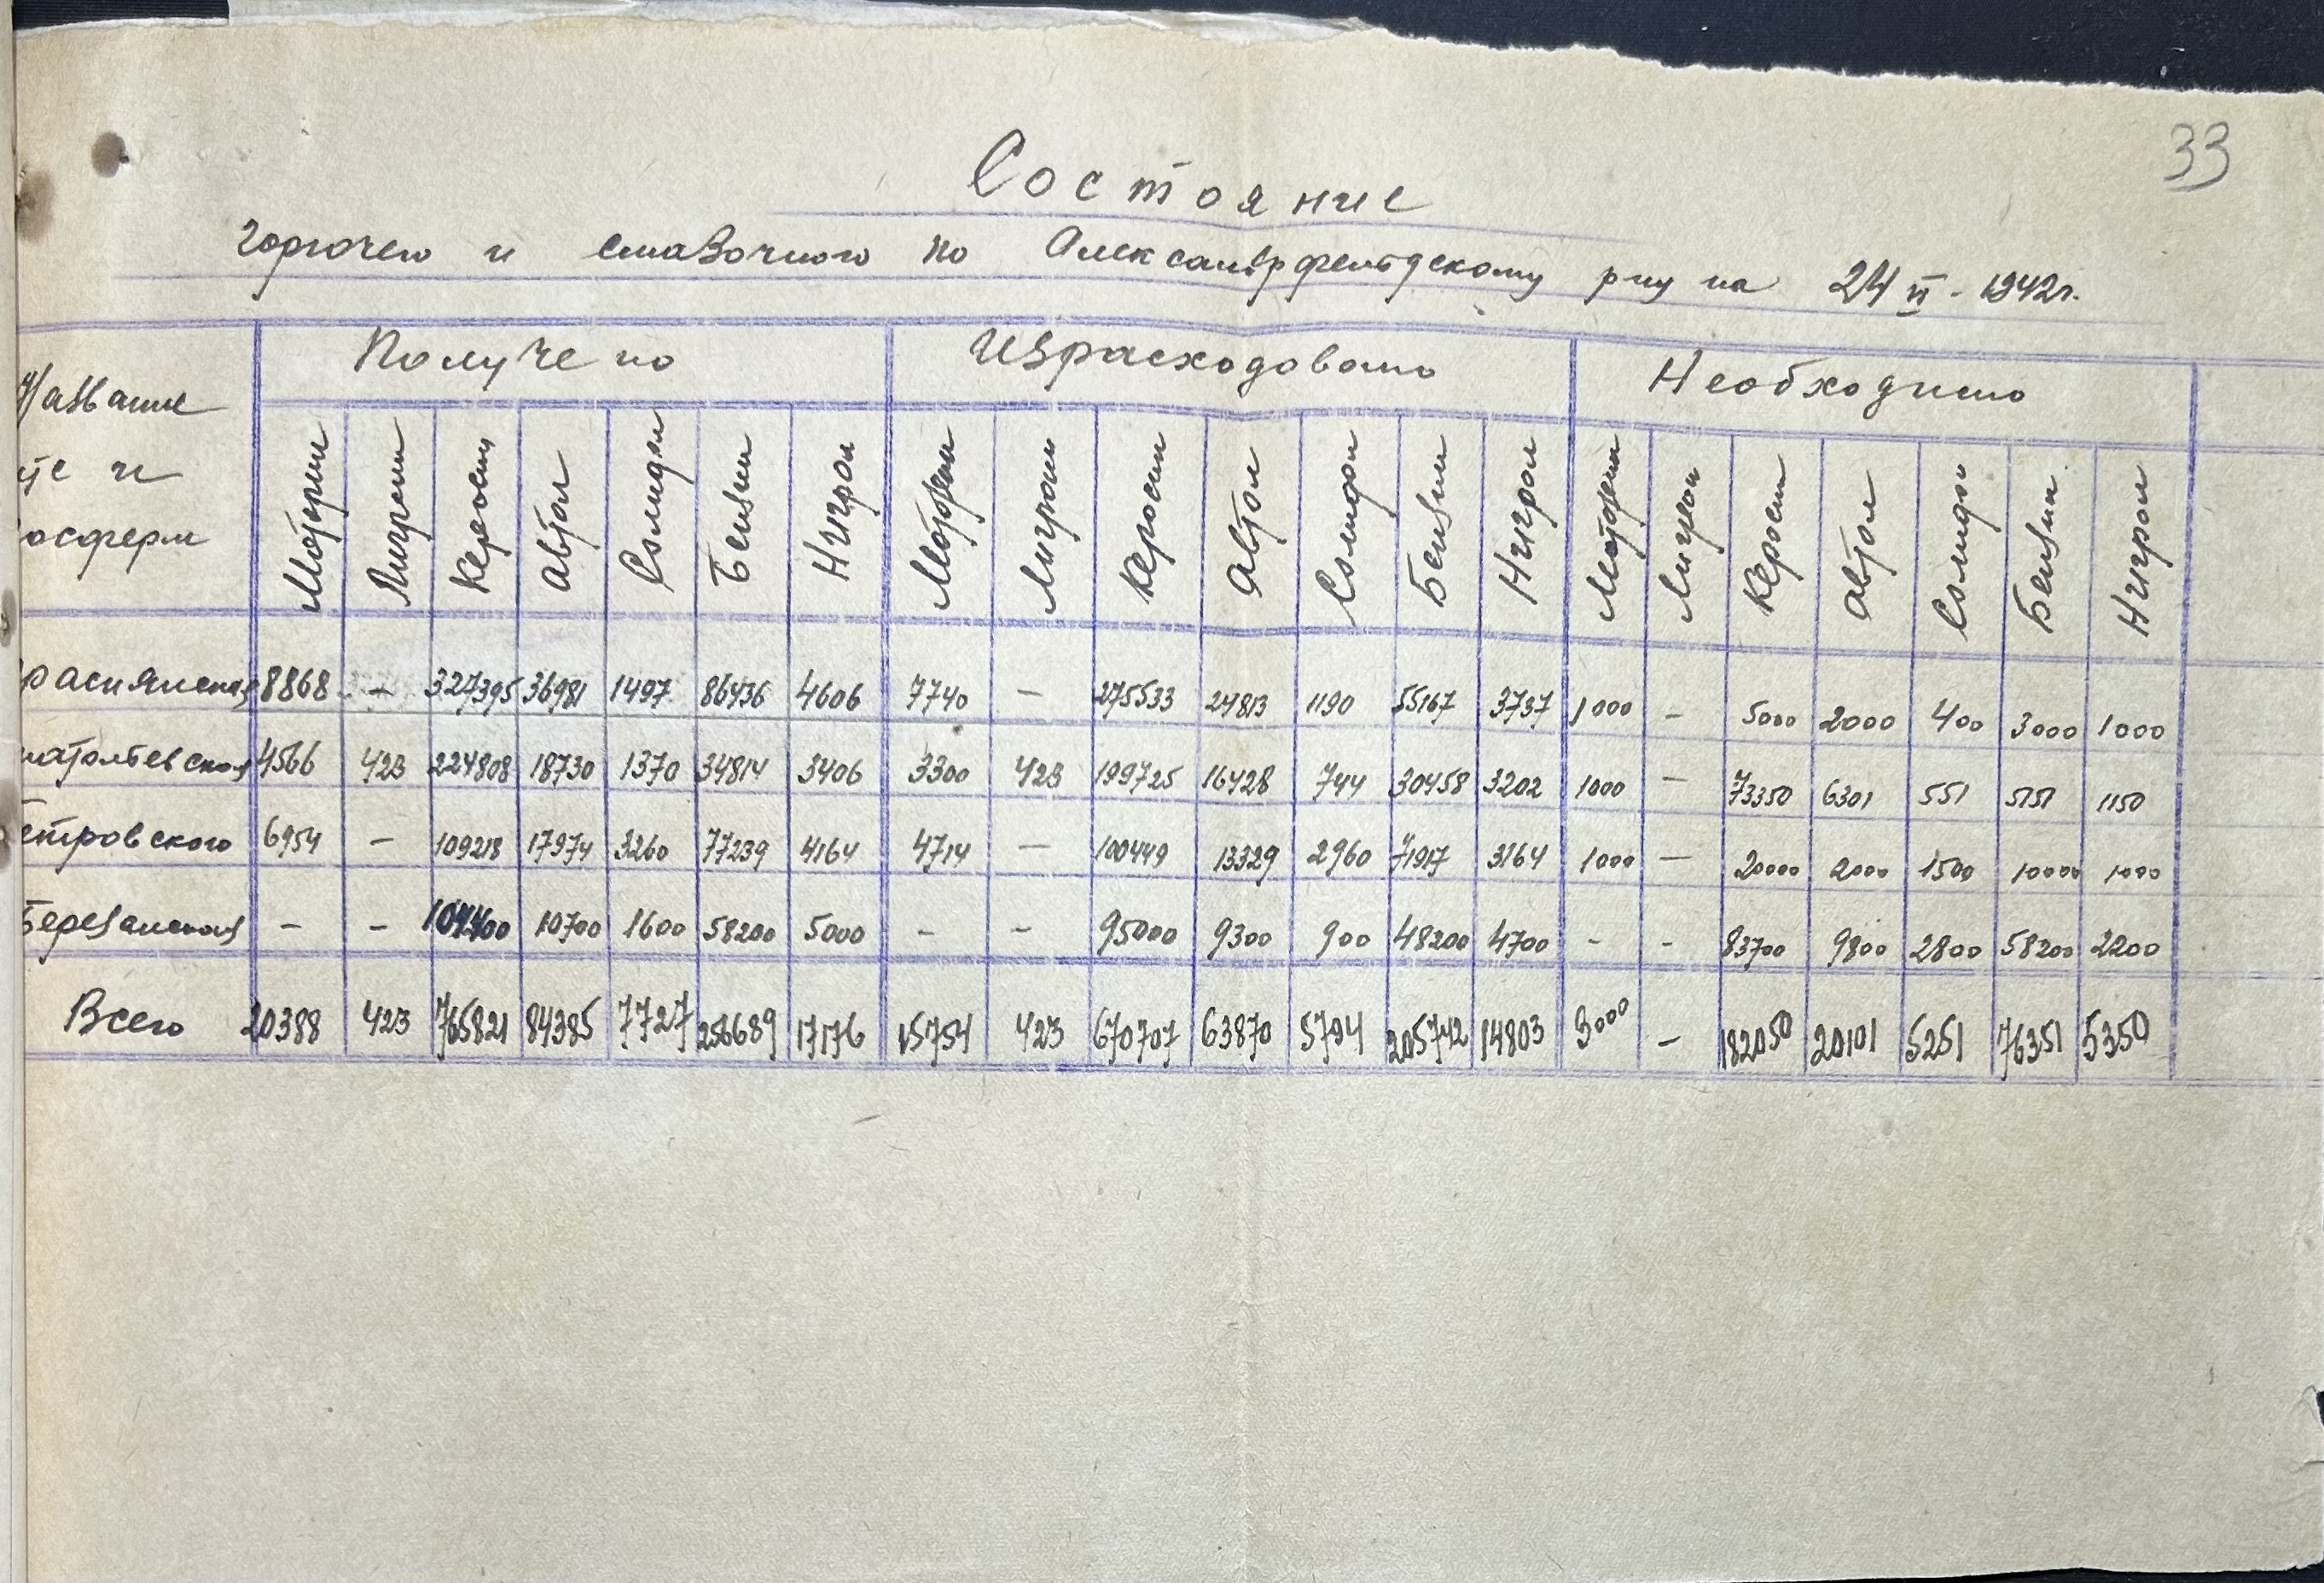 33
Состояние
горючего и смазочного по Александрфельдскому р-ну на 24 VI - 1942г.
Название
мтс и
госферм
Получено Израсходовано Необходимо
Моторин Лигроин Керосин Автол Солидол Бензин Нигрол Моторин Лигроин Керосин Автол Солидол Бензин Нигрол Моторин Лигроин Керосин Автол Солидол Бензин Нигрол
раснянская 8868 – 327395 36981 1497 86436 4606 7740 – 275533 24813 1190 55167 3737 1000 – 5000 2000 400 3000 1000
натольевская 4566 423 224808 18730 1370 34814 3406 3300 423 199725 16428 744 30458 3202 1000 – 73350 6301 551 5151 1150
етровского 6954 – 109218 17974 3260 77239 4164 4714 – 100449 13329 2960 71917 3164 1000 – 20000 2000 1500 10000 1000
Березанская – – 104400 10700 1600 58200 5000 – – 95000 9300 900 48200 4700 – – 83700 9800 2800 58200 2200
Всего 20388 423 765821 84385 7727 256689 17176 15754 423 670707 63870 5794 205742 14803 3000 – 182050 20101 5251 76351 5350